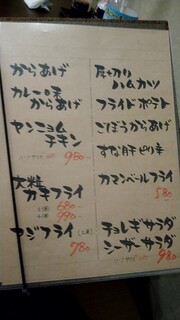 からあげ
カレー味
からあげ
ヤンニョム
チキン
980-
大粒
カキフライ
680-
990-
アジフライ
780-
厚切り
ハムカツ
フライドポテト
ごぼうからあげ
すな肝ピリ辛
カマンベールフライ
580-
チョレギサラダ
シーザーサラダ
980-